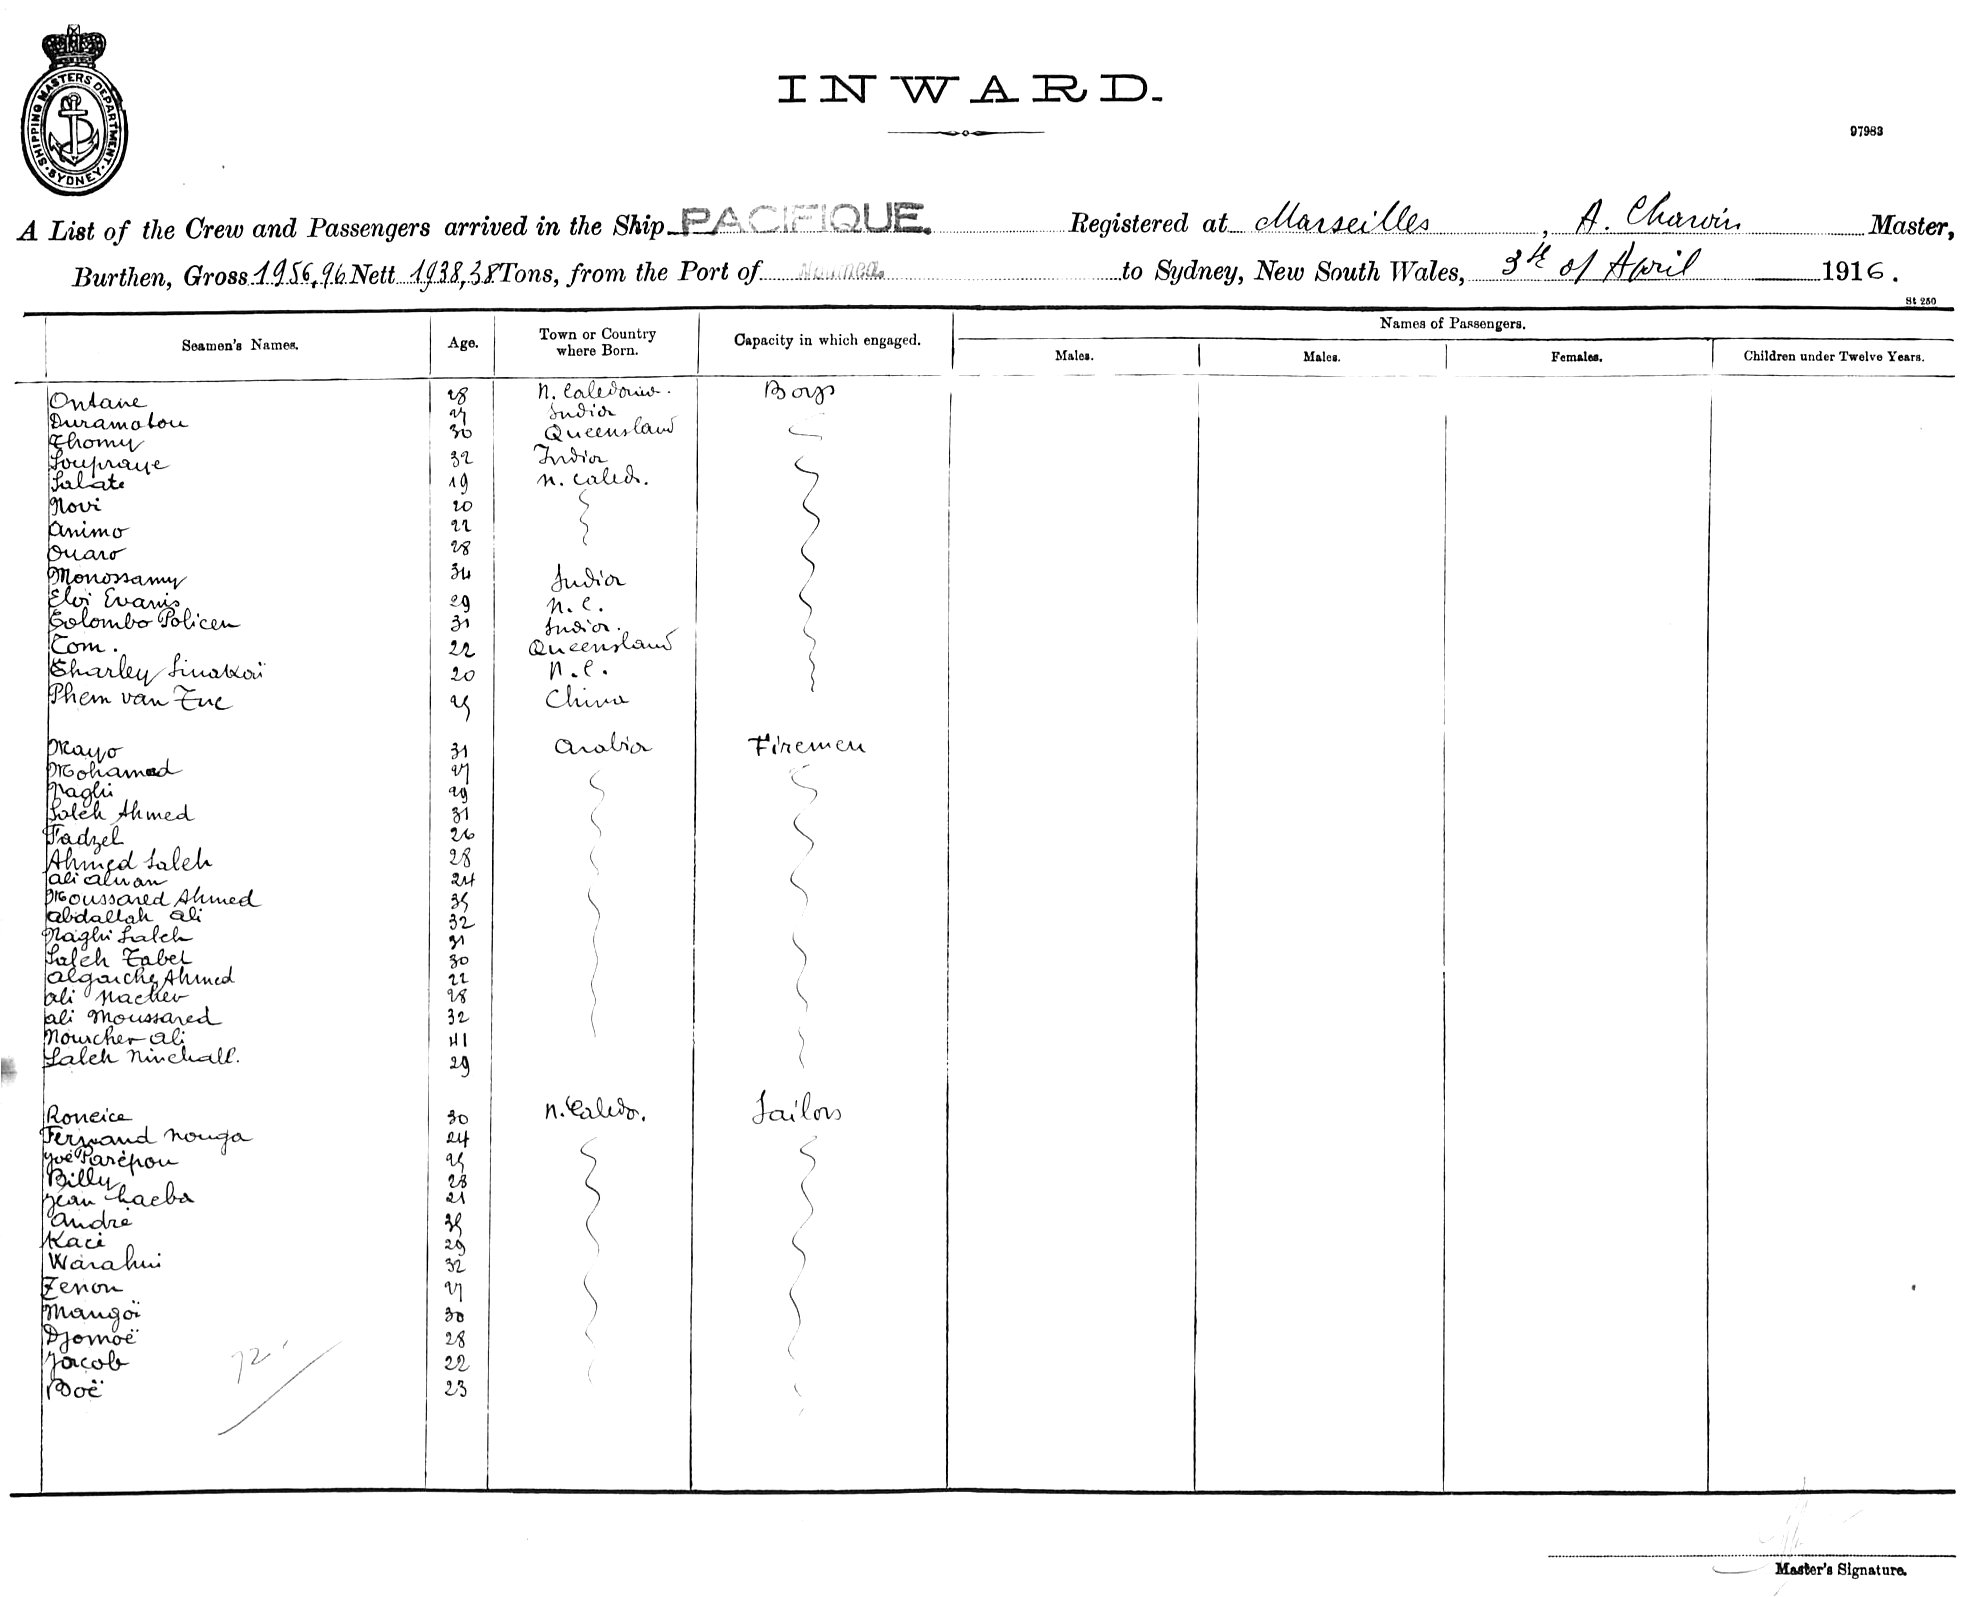 SHIPPING MASTERS DEPARTMENT
SYDNEY
INWARD.
97983
A List of the Crew and Passengers arrived in the Ship PACIFIQUE. Registered at Marseilles, A. Charvin Master,
Burthen, Gross 1956,96 Nett 1938,38 Tons, from the Port of Noumea to Sydney, New South Wales, 3th of April 1916.
St 250
Seamen's Names. Age. Town or Country where Born. Capacity in which engaged. Names of Passengers.
Males. Males. Females. Children under Twelve Years.
Ontane 28 N. Caledonia. Boys
Duramatou 27 India
Thomy 30 Queensland
Soupraye 32 India
Salate 19 N. Caled.
Novi 20
Animo 22
Ouaro 28
Monossamy 34 India
Eloi Evanis 29 N. C.
Colombo Policen 31 India.
Tom. 22 Queensland
Charley Sinakoï 20 N. C.
Phem van Tuc 25 China
Mayo 31 Arabia Firemen
Mohamed 27
Naghi 29
Saleh Ahmed 31
Fadzel 26
Ahmed Saleh 28
Ali Alwan 24
Moussared Ahmed 35
Abdallah Ali 32
Naghi Saleh 31
Saleh Tabet 30
Algaiche Ahmed 22
Ali Nacher 28
Ali Moussared 32
Noucher Ali 41
Saleh Ninchall. 29
Roneice 30 N. Caledo. Sailors
Fernand Nouga 24
Joë Parépou 25
Billy 28
Jean Haeba 21
André 35
Kaci 29
Warahui 32
Zenon 27
Mangoï 30
Djomoë 28
Jacob 22
Boë 23
72
Master's Signature.